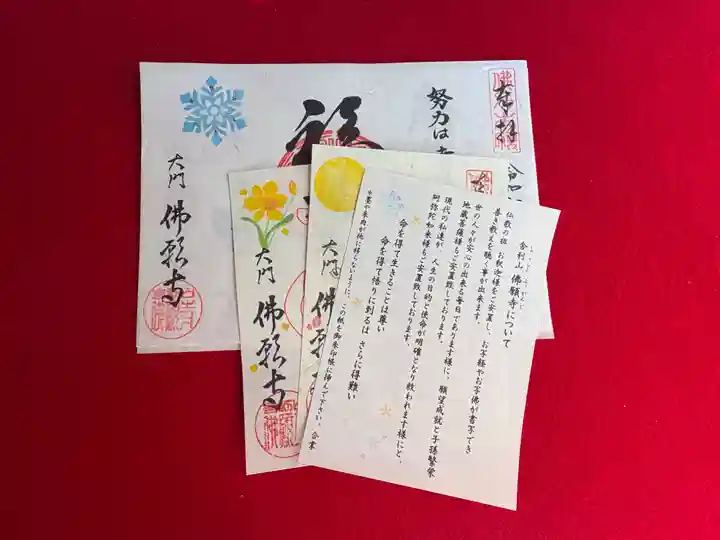 奉拝
努力は
福
大門
佛願寺
大門
佛願寺
大門
佛願
舎利山 佛願寺について
仏教の祖 お釈迦様をご安置し、お手経やお写佛が書写でき
善き教えを聴く事が出来ます。
世の人々が安心の出来る毎日であります様に、願望成就と子孫繁栄
地蔵菩薩様もご安置致しております。
現代の私達が、人生の目的と使命が明確となり救われます様にと、
阿弥陀如来様もご安置致しております。
命を得て生きることは尊い
命を得て悟りに到るは さらに得難い
※墨や朱肉が他に移らないように、この紙を御朱印帳に挿んで下さい。合掌